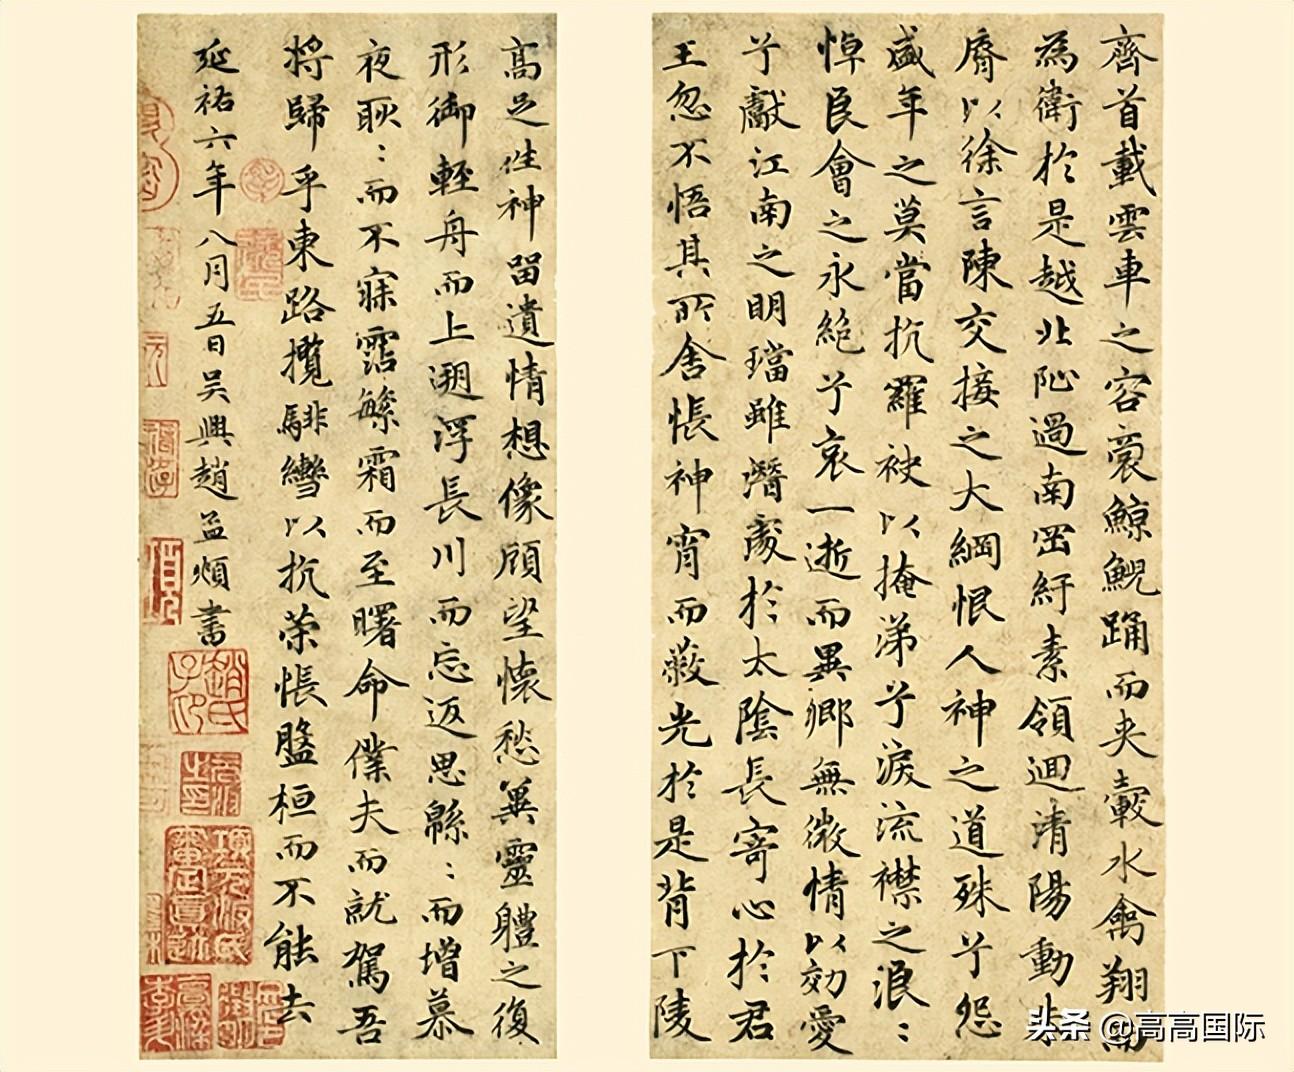 齊首載雲車之容裔鯨鯢踊而夾轂水禽翔而
為衛於是越北沚過南岡紆素領迴清陽動朱
脣以徐言陳交接之大綱恨人神之道殊兮怨
盛年之莫當抗羅袂以掩涕兮淚流襟之浪〻
悼良會之永絕兮哀一逝而異鄉無微情以効愛
兮獻江南之明璫雖潛處於太陰長寄心於君
王忽不悟其所舍悵神宵而蔽光於是背下陵
高足往神留遺情想像顧望懷愁冀靈體之復
形御輕舟而上遡浮長川而忘返思緜〻而增慕
夜耿〻而不寐霑繁霜而至曙命僕夫而就駕吾
將歸乎東路攬騑轡以抗策悵盤桓而不能去
延祐六年八月五日吳興趙孟頫書
頭条 @高高国际